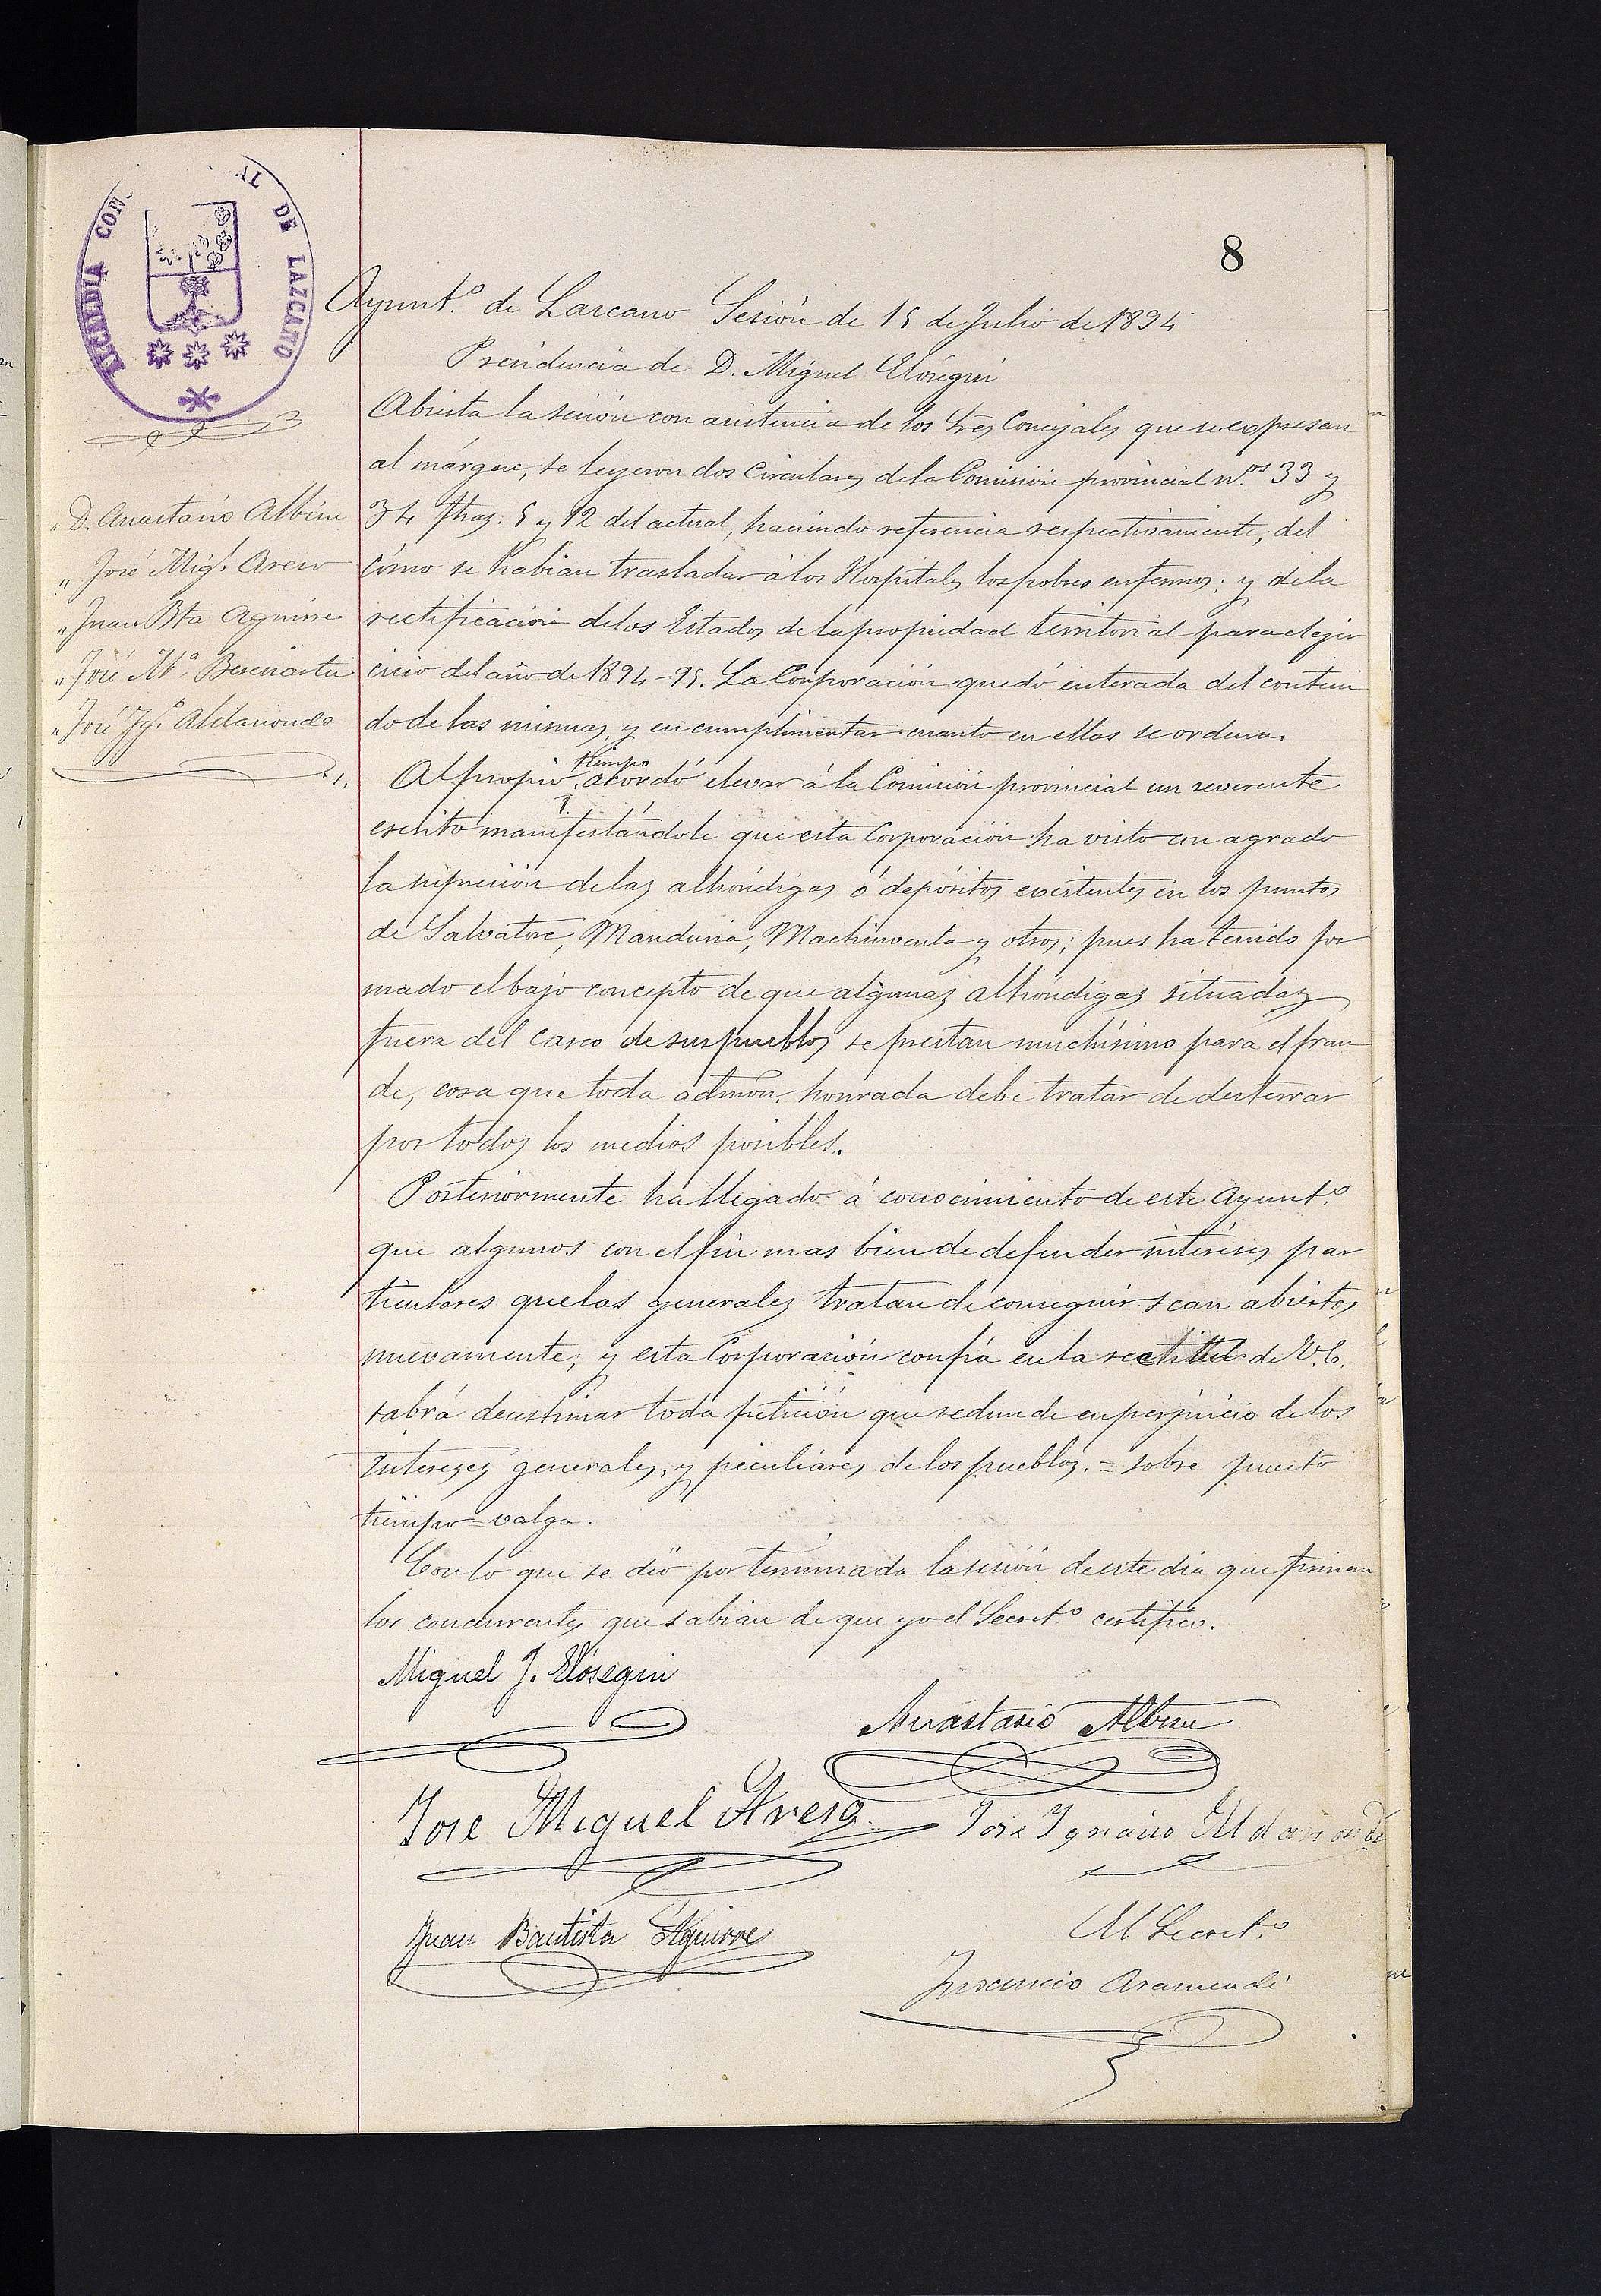 8
ALCALDIA CONS AL DE LAZCANO
Ayunt.º de Lazcano Sesión de 15 de Julio de 1894
Presidencia de D. Miguel Elósegui
Abierta la sesión con asistencia de los Sres Concejales que se expresan
al márgen, se leyeron dos Circulares de la Comisión provincial n.os 33 y
34 fhas: 5 y 12 del actual, haciendo referencia respectivamente, del
cómo se habian trasladar á los Hospitales los pobres enfermos; y de la
rectificación de los Estados de la propiedad territorial para el ejer
cicio del año de 1894-95. La Corporación quedó enterada del conteni
do de las mismas, y en cumplimentar cuanto en ellas se ordena.
D. Anastasio Albisu
" José Migl. Areso
" Juan Bta Aguirre
" José M.ª Bereciartu
" José Igº. Aldanondo
Al propio tiempo acordó elevar á la Comisión provincial un reverente
escrito manifestándole que esta Corporación ha visto con agrado
la supresión de las alhóndigas ó depósitos existentes en los puntos
de Salvatore, Manduvia, Machinventa y otros; pues ha tenido for
mado el bajo concepto de que algunas alhóndigas situadas
fuera del casco de sus pueblos se prestan muchísimo para el frau
de, cosa que toda admón. honrada debe tratar de desterrar
por todos los medios posibles.
Posteriormente ha llegado á conocimiento de este Ayunt.º
que algunos con el fin mas bien de defender intereses par
ticulares que las generales tratan de conseguir sean abiertos
nuevamente; y esta Corporación confía en la rectitud de V.E.
sabrá desestimar toda petición que redunde en perjuicio de los
intereses generales, y peculiares de los pueblos. = sobre puesto
tiempo = valga.
Con lo que se dió por terminada la sesión de este dia que firman
los concurrentes que sabian de que yo el Secret.º certifico.
Miguel J. Elósegui
Anastasio Albisu
Jose Miguel Areso
José Ygnacio Aldanondo
Juan Bautista Aguirre
El Secret.º
Inocencio Aramendi